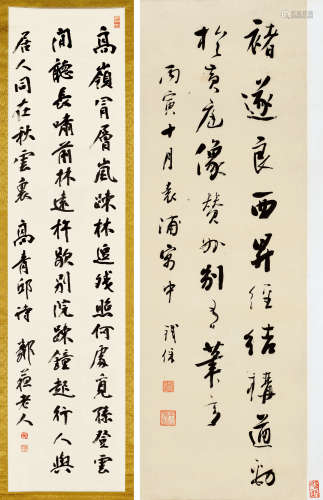 褚遂良西昇經結構遒勁
於黃庭像贊外別有筆意
丙寅十月袁浦寓中
高嶺冐層嵐疎林逗殘照何處覓孫登雲
間聽長嘯前林遠杵歇別院疎鐘起行人與
居人同在秋雲裏 高青邱詩 老人